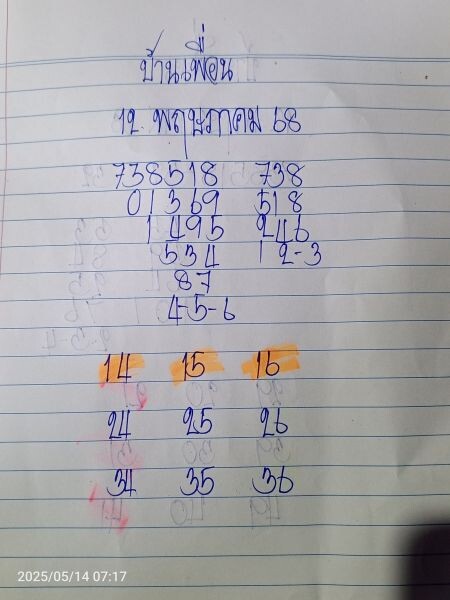 บ้านเพื่อน
12 พฤษภาคม 68
738518 738
01369 518
1495 246
534 12-3
87
4-5-6
14 15 16
24 25 26
34 35 36
2025/05/14 07:17